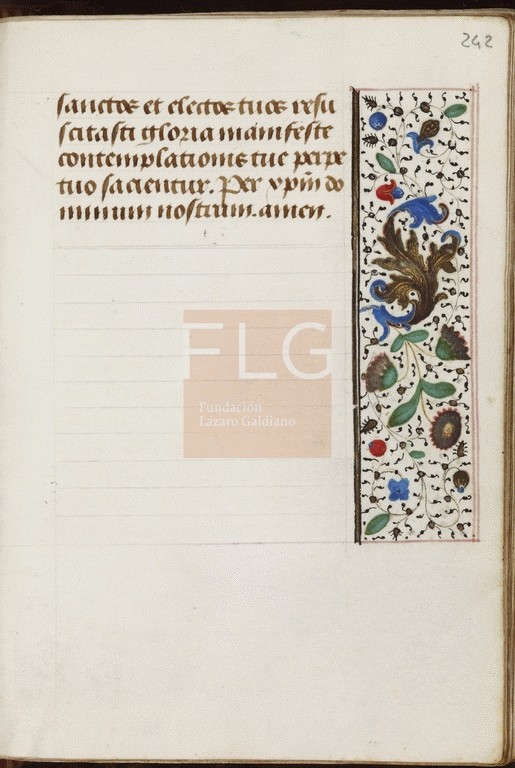 242
sanctos et electos tuos resu
scitasti gloria manifeste
contemplationis tue perpe
tuo sacientur. Per xpm do
minum nostrum. amen.
FLG
Fundación
Lázaro Galdiano